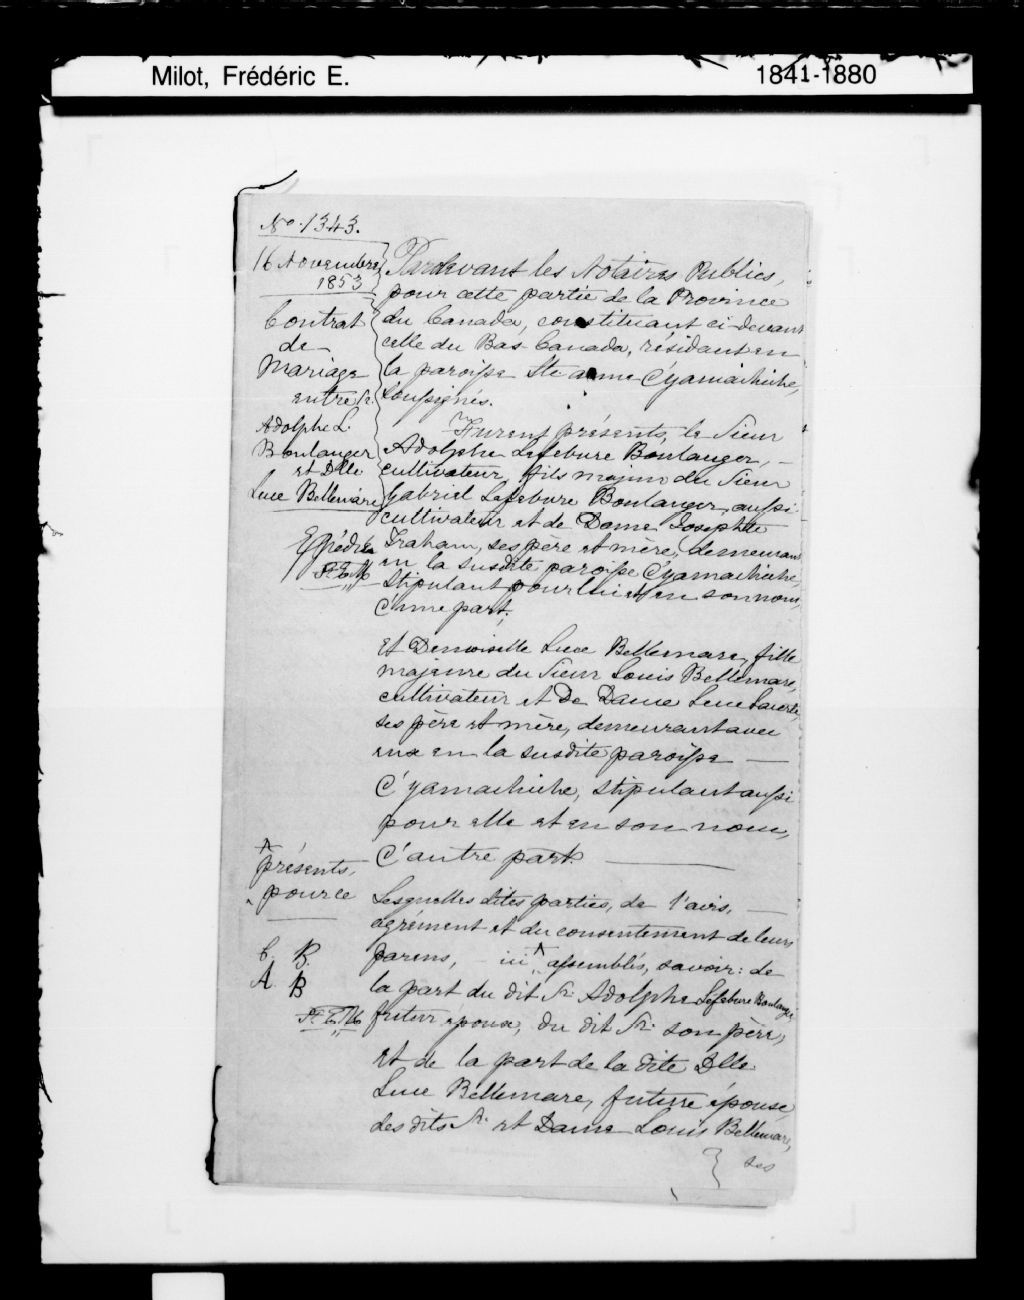 Milot, Frédéric E.
1841-1880
No. 1343.
16 Novembre
1853
Contrat
de
Mariage
entre Sr.
Adolphe L.
Boulanger
et Dlle
Luce Bellemare
Expédiée
F.E.M
Pardevant les Notaires Publics,
pour cette partie de la Province
du Canada, constituant ci-devant
celle du Bas-Canada, résidant en
la paroisse Ste anne d'yamachiche,
soussignés.
Furent présents, le Sieur
Adolphe Lefebvre Boulanger,
cultivateur, fils majeur du Sieur
Gabriel Lefebvre Boulanger, aussi
cultivateur et de Dame Josephte
Traham, ses père et mère, demeurant
en la susdite paroisse d'yamachiche,
stipulant pour lui et en son nom,
d'une part;
Et Demoiselle Luce Bellemare, fille
majeure du Sieur Louis Bellemare,
cultivateur et de Dame Luce
ses père et mère, demeurant avec
eux en la susdite paroisse
d'yamachiche, stipulant aussi
pour elle et en son nom,
d'autre part.
Lesquelles dites parties, de l'avis,
agrément et du consentement de leurs
parens, ici assemblés, savoir: de
la part du dit Sr. Adolphe Lefebvre Boulanger
futur époux, du dit Sr. son père,
et de la part de la dite Dlle.
Luce Bellemare, future épouse,
des dits Sr. et Dame Louis Bellemare,
ses
présents,
pour ce
L. B.
A. B
F.E.M